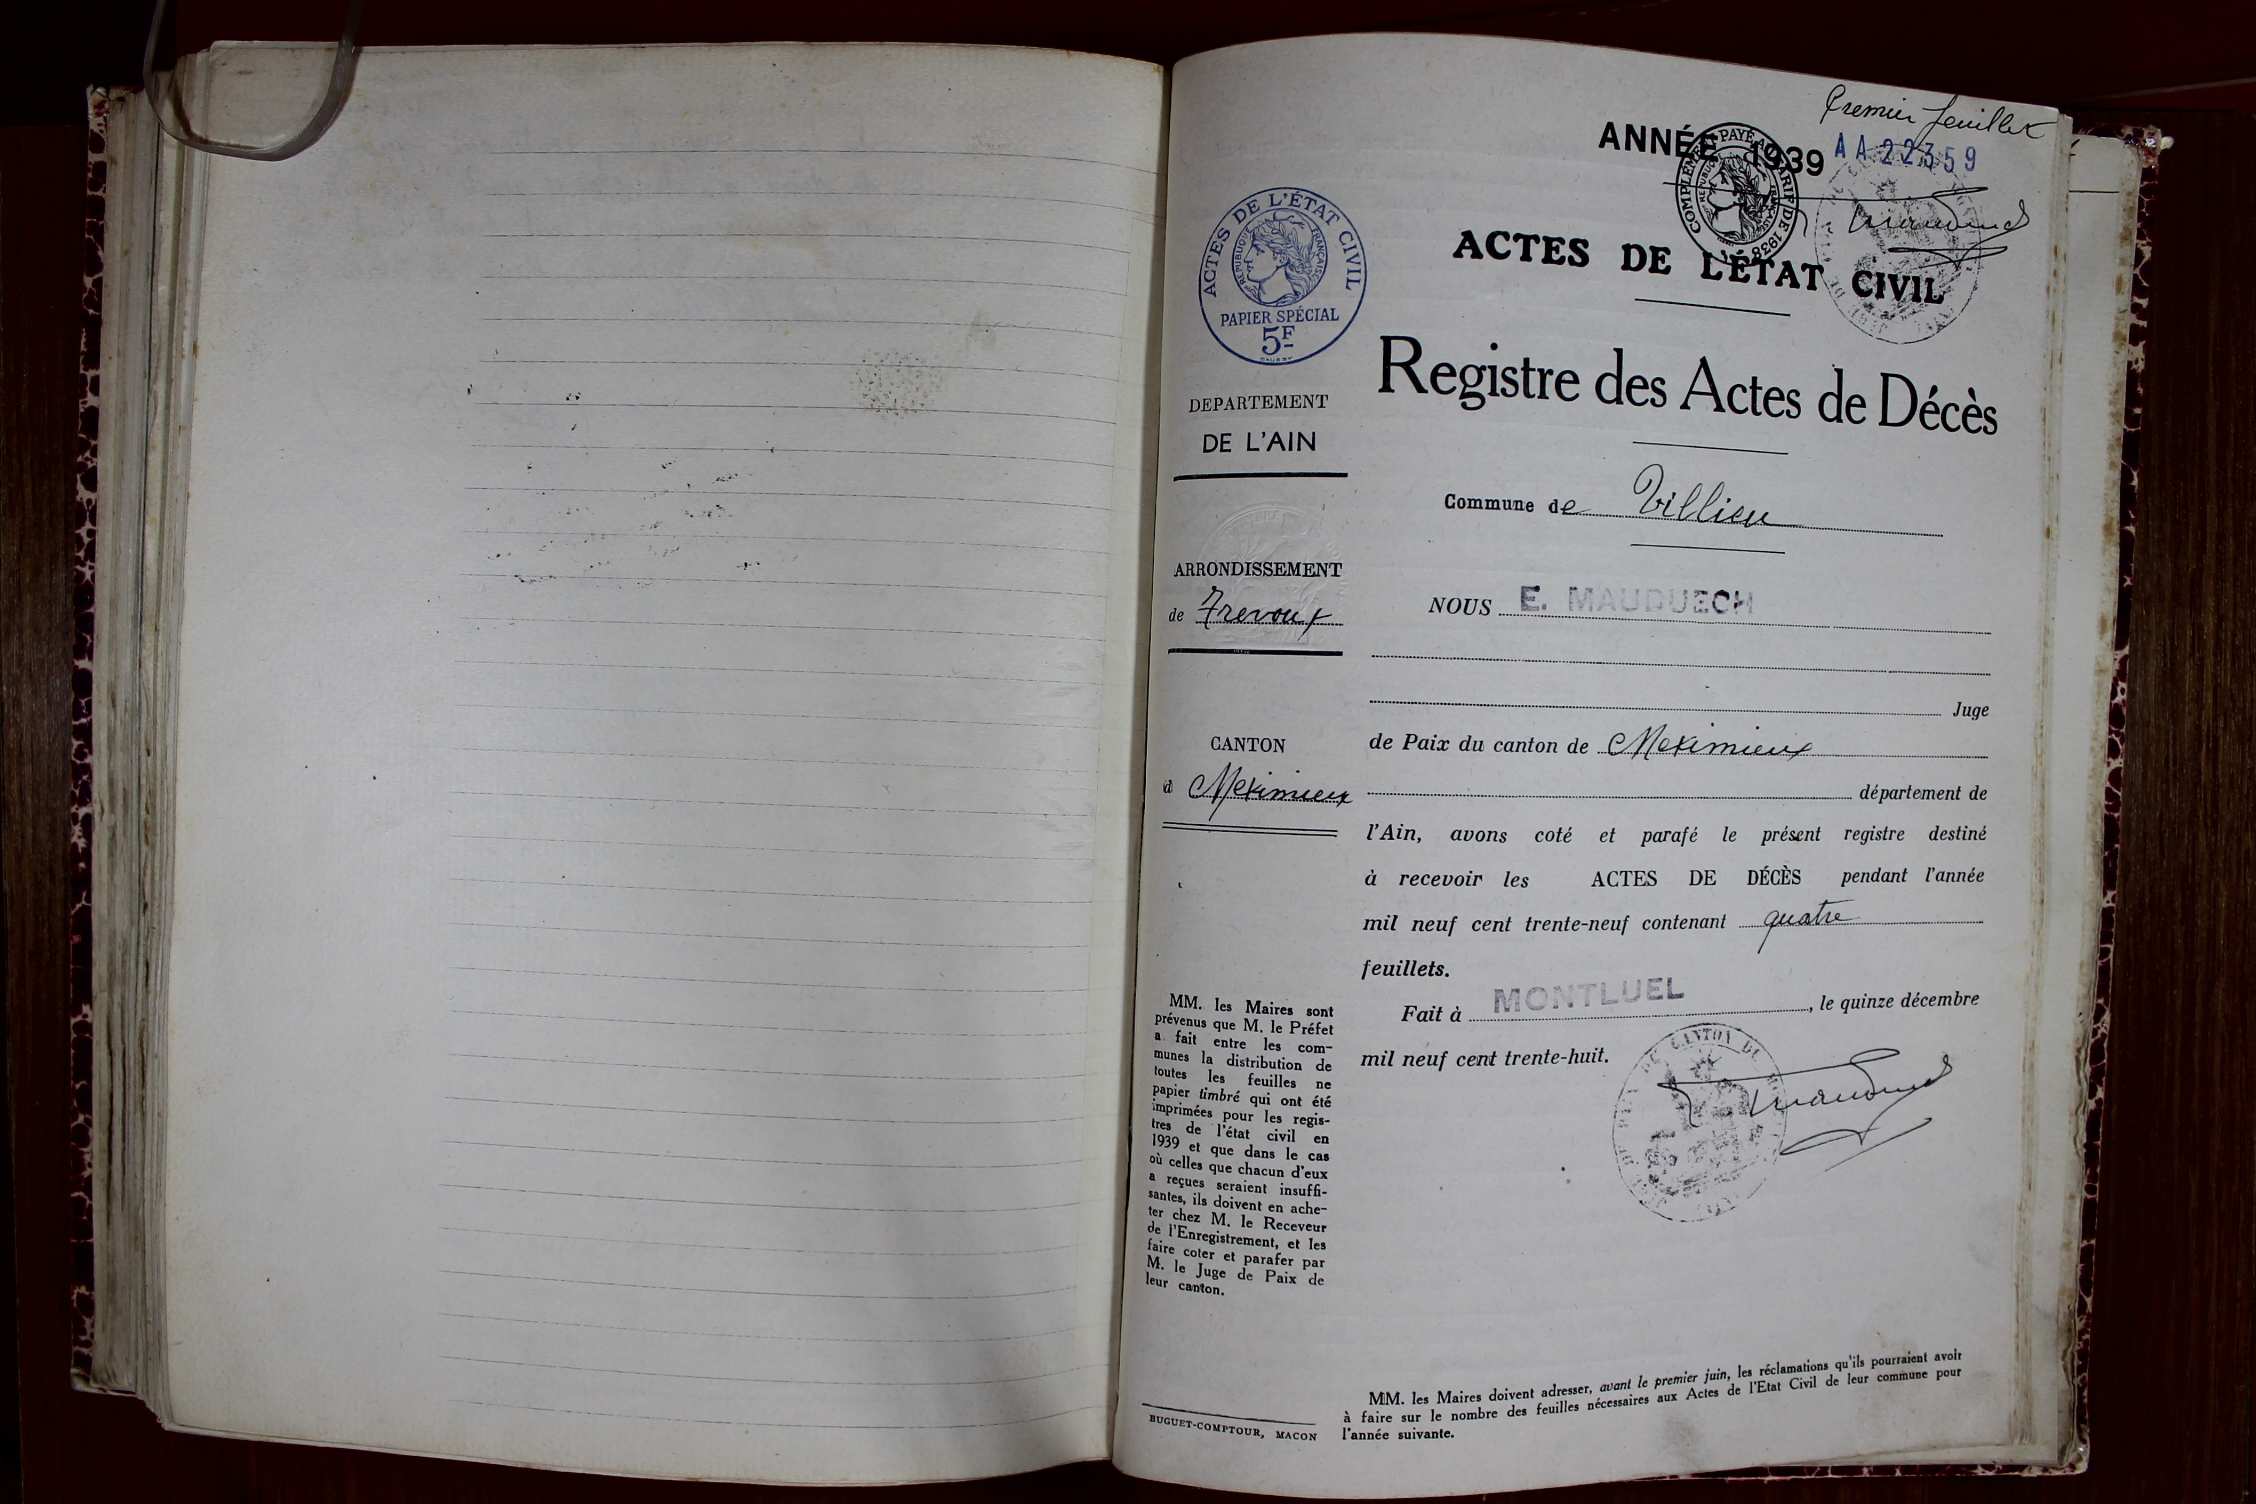 Premier feuillet
ANNÉE 1939
AA22359
COMPLÉMENT PAYÉ AU TARIF DE 1938
RÉPUBLIQUE FRANÇAISE
ACTES DE L'ÉTAT CIVIL
RÉPUBLIQUE FRANÇAISE
PAPIER SPÉCIAL
5F
ACTES DE L'ÉTAT CIVIL
Registre des Actes de Décès
DEPARTEMENT
DE L'AIN
Commune de Villieu
ARRONDISSEMENT
de Trevoux
CANTON
d Meximieux
NOUS E. MAUDUECH
Juge
de Paix du canton de Meximieux
département de
l'Ain, avons coté et parafé le présent registre destiné
à recevoir les ACTES DE DÉCÈS pendant l'année
mil neuf cent trente-neuf contenant quatre
feuillets.
Fait à MONTLUEL, le quinze décembre
mil neuf cent trente-huit.
CANTON DE
MM. les Maires sont
prévenus que M. le Préfet
a fait entre les com-
munes la distribution de
toutes les feuilles ne
papier timbré qui ont été
imprimées pour les regis-
tres de l'état civil en
1939 et que dans le cas
où celles que chacun d'eux
a reçues seraient insuffi-
santes, ils doivent en ache-
ter chez M. le Receveur
de l'Enregistrement, et les
faire coter et parafer par
M. le Juge de Paix de
leur canton.
BUGUET-COMPTOUR, MACON
MM. les Maires doivent adresser, avant le premier juin, les réclamations qu'ils pourraient avoir
à faire sur le nombre des feuilles nécessaires aux Actes de l'Etat Civil de leur commune pour
l'année suivante.